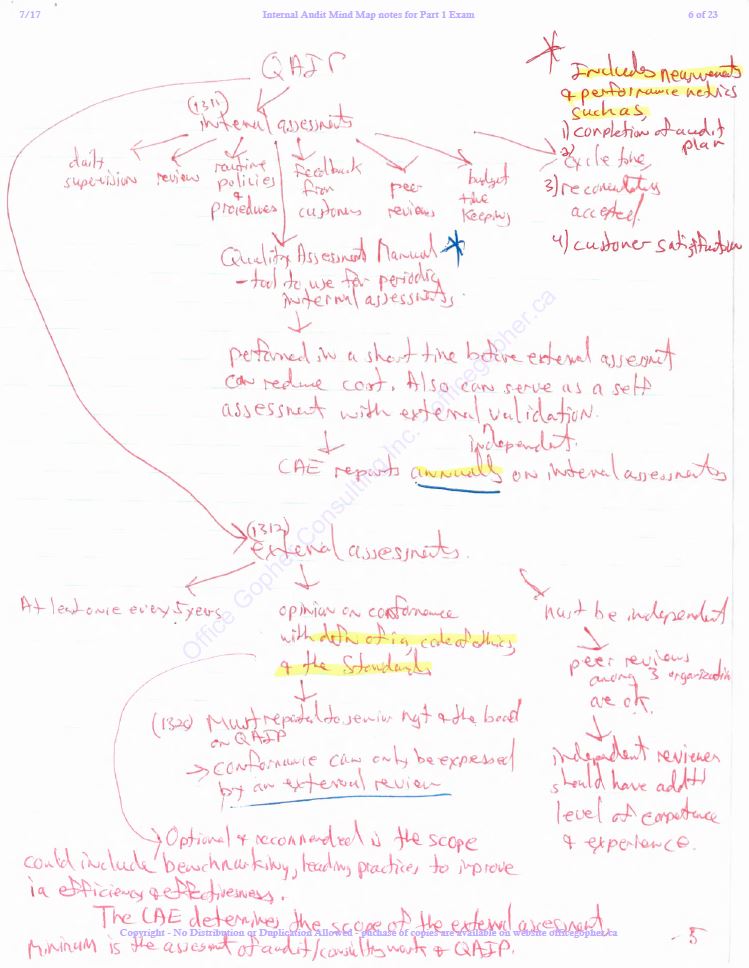 7/17
Internal Audit Mind Map notes for Part 1 Exam
6 of 23
QAIP
(1311)
internal assessments
daily
supervision
review
routine
policies
&
procedures
Feedback
from
customers
peer
reviews
budget
time
keeping
*
Includes measurements
& performance metrics
such as,
1) completion of audit
plan
2) cycle time
3) recommendations
accepted
4) customer satisfaction
Quality Assessment Manual *
- tool to use for periodic
internal assessments.
performed in a short time before external assessment
can reduce cost. Also can serve as a self
assessment with external validation.
independent.
CAE reports annually on internal assessments
(1312)
external assessments.
At least once every 5 years
opinion on conformance
with defn of ia, code of ethics,
& the Standards
(1320) Must report to senior mgt & the board
on QAIP
→ conformance can only be expressed
by an external review
must be independent
peer reviews
among 3 organizations
are ok.
independent reviewer
should have
level of competence
& experience.
Optional & recommended is the scope
could include benchmarking, leading practices to improve
ia efficiency & effectiveness.
The CAE determines the scope of the external assessment
Minimum is the assessment of audit/consulting work & QAIP.
Copyright - No Distribution or Duplication Allowed - purchase of copies are available on website officegopher.ca
- 5
Office Gopher Consulting Inc. officegopher.ca